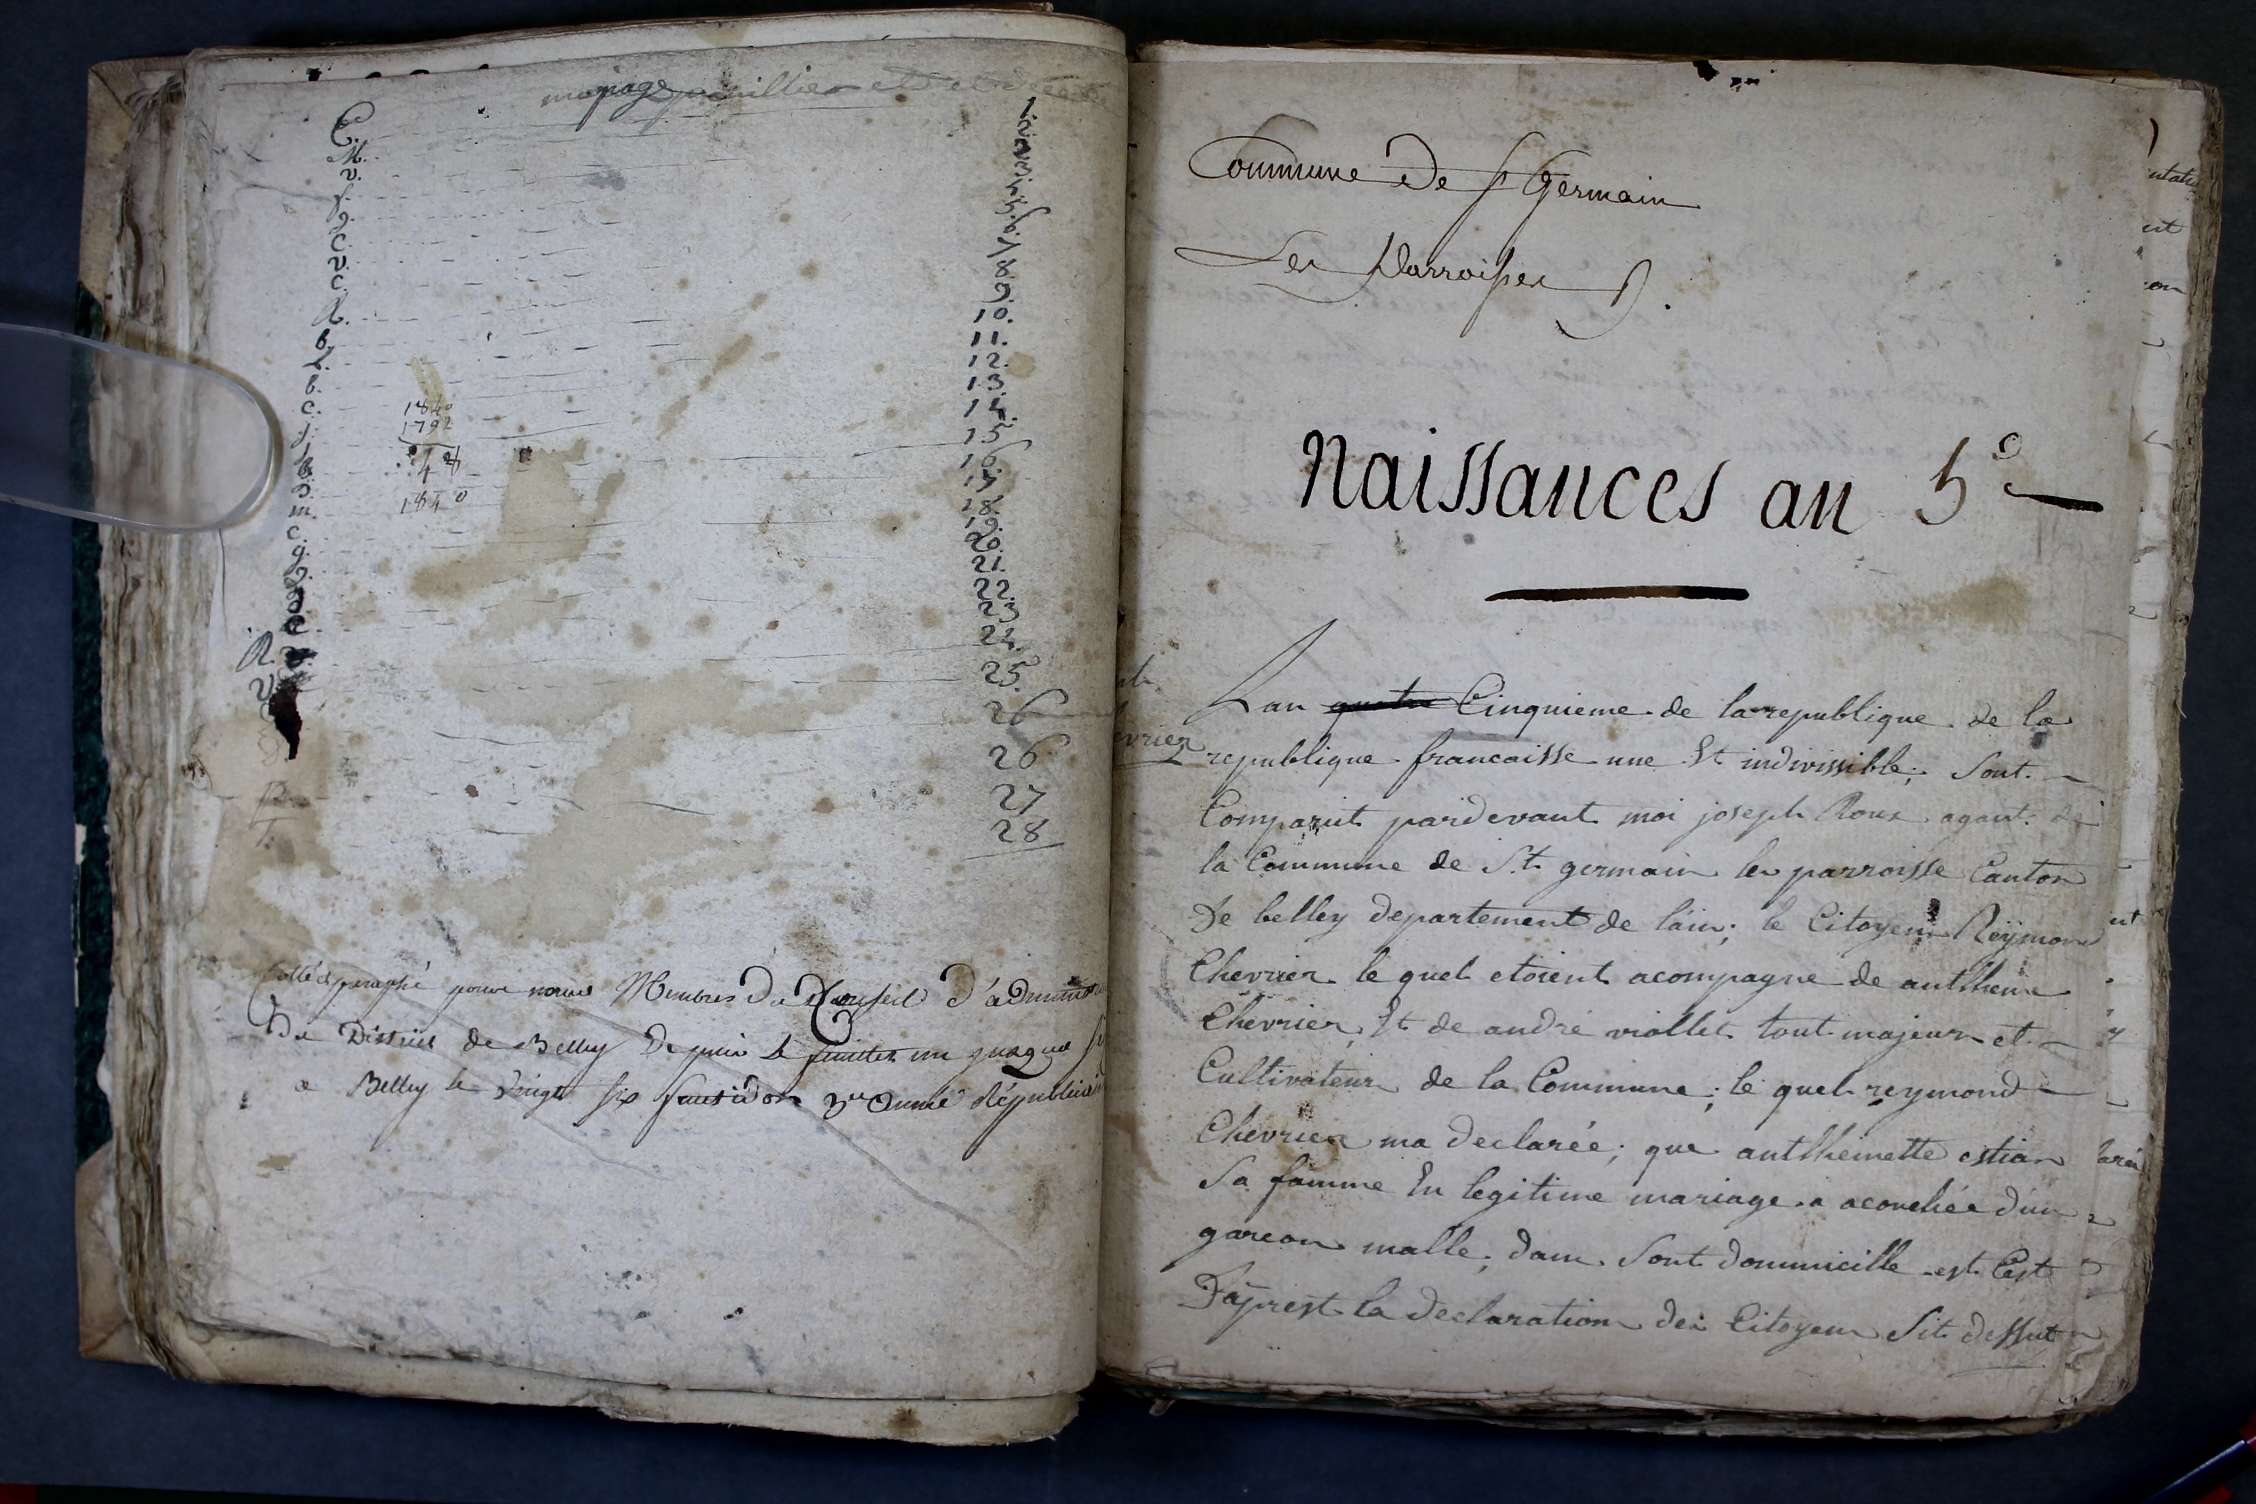 mariage
C. 1
M. 2
v. 3
f. 4.
g. 5.
C. 6.
v. 7
C. 8
R. 9.
10.
b. 11.
L. 12.
b. 13.
C. 14.
j. 15
b. 16.
17
m. 18.
C. 19.
g. 20.
21.
22.
23
C. 24.
R. 25.
26
26
27
28
1840
1792
48
1840
Cotté et paraphé par nous Membres du Conseil d'adminis
Du District de Belley Depuis le feuillet un jusqua
a Belley le Vingt six fructidor 3e année Républicain
Commune De St Germain
Les Parroisses
Naissances an 5e
Lan quatre Cinquieme de la republique de la
republique francaisse une Et indivissible; Sont
Comparut pardevant moi joseph Roux agant de
la Commune de St. germain les parroisse Canton
De belley departement de l'ain; le Citoyen Reÿmond
Chevrier le quel etoient acompagne de anthheme
Chevrier, Et de andré viollet tout majeur et
Cultivateur de la Commune; le quel reymond
Chevrier ma declarée; que anthhemette
Sa famme En legitime mariage a acouchée d'un
garcon malle; dam Sont dommicille est Cest
D'aprest la declaration dei Citoyen Sit dessut
evrier